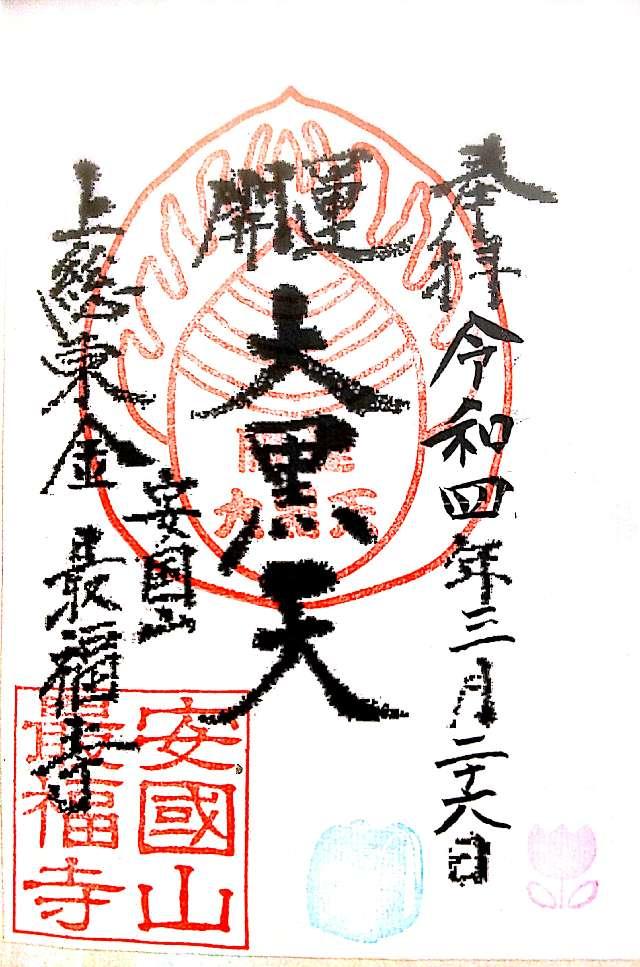 奉拝
令和四年三月二十六日
開運
大黒天
安国山
上総東金
最福寺
開運
大黒天
安國山
最福寺